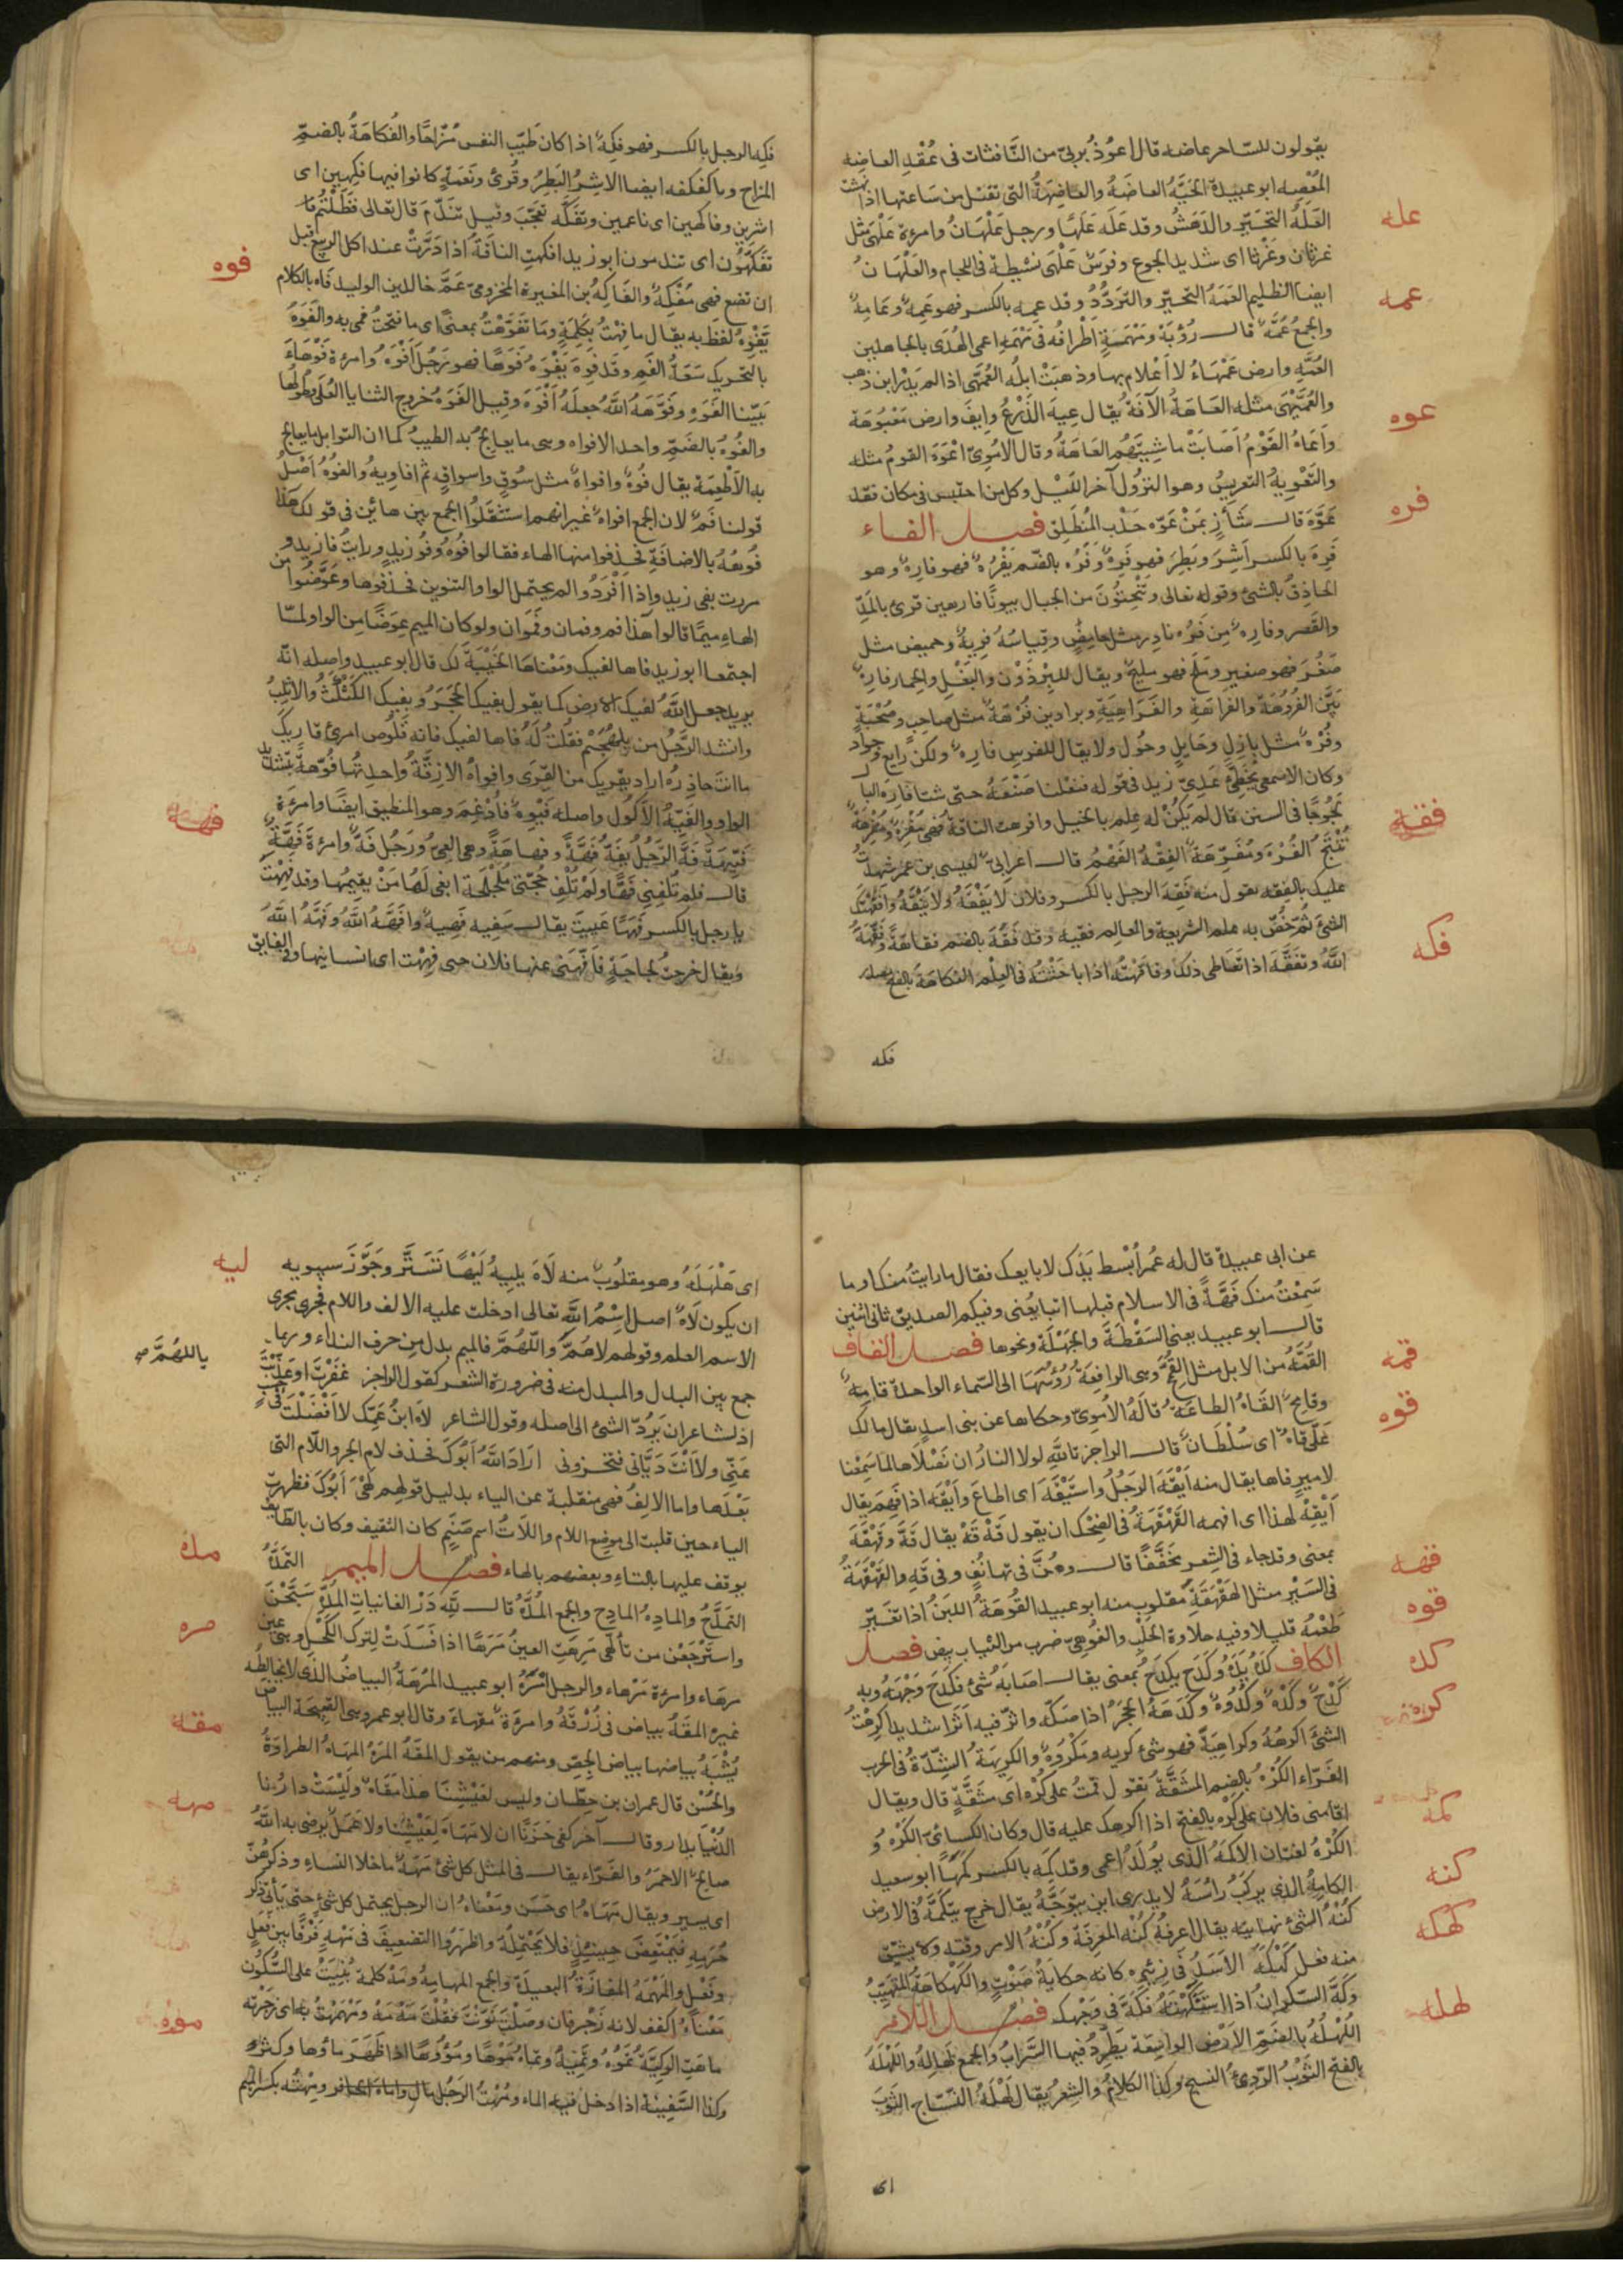 يقولون للساحر عاضه قال اعوذ بربي من النافثات في عقد العاضه
المعضه ابو عبيدة الحيّة العاضه والعاضهة التي تقتل من ساعتها اذا نهشت
عله
العَلَه التحيّر والدهش وقد عله علها ورجل علهان وامرءة علهى مثل
غرثان وغرثا اى شديد الجوع وفرس علهى نشيطة في اللجام والعلهان
عمه
ايضا الظليم العمه التحيّر والتردّد وقد عمه بالكسر فهو عمه وعامه
والجمع عمّه قال رؤبة ومهمه اطرافه في مهمه اعمى الهدى بالجاهلين
العمّه وارض عمهاء لا اعلام بها وذهبت ابله العمّهى اذا لم يدر اين ذهب
عوه
والعمّيهى مثله العاهة الآفة يقال عيه الزرع وايف وارض معيوهة
واعاه القوم اصابت ماشيتهم العاهة وقال الاموي اعوه القوم مثله
والتعويه التعريس وهو النزول آخر الليل وكل من احتبس في مكان فقد
فره
عوّه قال شأز بمن عوّه جدب المنطلق فصل الفاء
فره بالكسر اشر وبطر فهو فره وفره بالضم يفره فهو فاره وهو
الحاذق بالشئ وقوله تعالى وتنحتون من الجبال بيوتا فارهين قرئ بالمدّ
والقصر وفاره من فره نادر مثل حامض وقياسه فريه وحميض مثل
صغر فهو صغير وملح فهو مليح ويقال للبرذون والبغل والحمار فاره
بيّن الفروهة والفراهة والفراهية وبراذين فرهة مثل صاحب وصحبة
وفره مثل بازل وحايل وحول ولا يقال للفرس فاره ولكن رايع وجواد
وكان الاصمعي يخطّئ عدي بن زيد في قوله فنقلنا صنعه حتى شتا فاره البال
فقه
لجوجا في السنن قال لم يكن له علم بالخيل وافرهت الناقة فهي مفره ومفرهة
تنتج الفره ومفرّهة الفقه الفهم قال اعرابي لعيسى بن عمر شهدت
عليك بالفقه تقول منه فقه الرجل بالكسر وفلان لا يفقه ولا ينقه وافقهتك
فكه
الشئ ثم خصّ به علم الشريعة والعالم فقيه وقد فقه بالضم فقاهة وفقّهه
الله وتفقّه اذا تعاطى ذلك وفاقهته اذا باحثته في العلم الفكاهة بالفتح مصدر
فكه
فكه الرجل بالكسر فهو فكه اذا كان طيّب النفس مزّاحا والفكاهة بالضمّ
المزاح وفاكهه ايضا الاشر البطر وقرئ ونعمة كانوا فيها فكهين اى
اشرين وفاكهين اى ناعمين وتفكّه تعجّب وقيل تندّم قال تعالى فظلتم
فوه
تفكهون اى تندمون ابو زيد افكهت الناقة اذا درّت عند اكل الربيع قبل
ان تضع فهي مفكه والفاكه بن المغيرة المخزومي عمّ خالد بن الوليد فاه بالكلام
يفوه لفظ به يقال ما فهت بكلمة وما تفوّهت بمعنى اى ما فتحت فمى به والفوه
بالتحريك سعة الفم وقد فوه يفوه فوها فهو رجل افوه وامرءة فوهاء
بيّنا الفوه وفوّهه الله جعله افوه وقيل الفوه خروج الثنايا العلى وطولها
والفوه بالضمّ واحد الافواه وهي ما يعالج به الطيب كما ان التوابل ما يعالج
به الاطعمة يقال فوه وافواه مثل سوق واسواق ثم افاويه والفوه اصل
قولنا فم لان الجمع افواه غير انهم استثقلوا الجمع بين هائين في قولك هذا
فوهه بالاضافة فحذفوا منها الهاء فقالوا فوه وفو زيد ورايت فا زيد و
مررت بفي زيد واذا افردوا لم يحتمل الواو التنوين فحذفوها وعوّضوا من
الهاء ميما قالوا هذا فم وفمان وفموان ولو كان الميم عوضا من الواو لما
اجتمعا ابو زيد فاها لفيك ومعناها الخيبة لك قال ابو عبيد واصله انه
يريد جعل الله لفيك الارض كما يقول بفيك الحجر وبفيك الكثكث والاثلب
وانشد لرجل من بلهجيم فقلت له فاها لفيك فانه قلوص امرئ قاريك
ما انت حاذره اراد يقريك من القرى وافواه الازقة واحدتها فوّهة بتشديد
فهه
الواو والفيّه الاكول واصله فيوه فادغم وهو المنطيق ايضا وامرءة
فيّهة فهّ الرجل يفهّ فهّا وفهاهة وهي العي ورجل فهّ وامرءة فهّة
قال فلم تلفني فهّا ولم تلف حجّتي ملجلجة ابغي لها من يقيمها وقد فههت
يا رجل بالكسر فههًا عييت يقال سفيه فهيه وافهّه الله وفهّه الله
ويقال خرجت لحاجة فافهّني عنها فلان حتى فههت اى انسانيها وفي الفايق
عن ابي عبيدة قال له عمر ابسط يدك لابايعك فقال ما رايت منك او ما
سمعت منك فهّة في الاسلام قبلها اتبايعني وفيكم الصديق ثاني اثنين
قال ابو عبيد يعني السقطة والجهلة ونحوها فصل القاف
قمه
القمّه من الابل مثل القمّح وهي الرافعة رؤسها الى السماء الواحدة قامه
قوه
وقامح القاه الطاعة قاله الاموي وحكاها عن بني اسد يقال مالك
عليّ قاه اى سلطان قال الراجز تالله لولا النار ان نصلاها لما سمعنا
لامير قاها يقال منه ايقه الرجل واستيقه اى اطاع وايقه اذا فهم يقال
ايقه لهذا اى افهمه القهقهة في الضحك ان يقول قه قه يقال قهّ وقهقه
قهه
بمعنى وقد جاء في الشعر مخفّفا قال وهنّ في تهانف وفي قه والقهقهة
في السير مثل الهقهقة مقلوب منه ابو عبيد القوهة اللبن اذا تغيّر
قوه
طعمه قليلا وفيه حلاوة الحلب والقوهي ضرب من الثياب بيض فصل
كده
الكاف كده يكده وكدح يكدح بمعنى يقال اصابه شئ فكدح وجهه وبه
كدح وكده وكدوه وكدهه الحجر اذا صكّه واثّر فيه اثرا شديدا كرهت
كره
الشئ اكرهه وكراهية فهو شئ كريه ومكروه والكريهة الشدّة في الحرب
الفرّاء الكره بالضم المشقّة يقول قمت على كره اى مشقّة قال ويقال
كمه
اقامني فلان على كره بالفتح اذا اكرهك عليه قال وكان الكسائي الكره و
الكره لغتان الاكمه الذي يولد اعمى وقد كمه بالكسر كمها ابو سعيد
كنه
الكامه الذي يركب راسه لا يدري اين يتوجّه يقال خرج يتكمّه في الارض
كنه الشئ نهايته يقال اعرفه كنه المعرفة وكنه الامر وقته ولا يشتق
كهكه
منه فعل كهكه الاسد في زئيره كانه حكاية صوت والكهكاهة المتهيّب
وكهّ السكران اذا استنكهته فكهّ في وجهك فصل اللام
لهله
اللهله بالضمّ الارض الواسعة يطّرد فيها السراب والجمع لهاله واللهله
بالفتح الثوب الردئ النسج وكذا الكلام والشعر يقال لهله النسّاج الثوب
اى
ليه
اى هلهله وهو مقلوب منه لاه يليه ليها تستّر وجوّز سيبويه
ان يكون لاه اصل اسم الله تعالى ادخلت عليه الالف واللام فجرى مجرى
الاسم العلم وقولهم لاهمّ واللهمّ فالميم بدل من حرف النداء وربما
ياللهمّ صح
جمع بين البدل والمبدل منه في ضرورة الشعر كقول الراجز غفرت او عذبت
اذ لشاعر ان يردّ الشئ الى اصله وقول الشاعر لاه ابن عمّك لا افضلت في حسب
عنّي ولا انت ديّاني فتخزوني اراد الله ابوك فحذف لام الجر واللام التي
بعدها واما الالف فهي منقلبة عن الياء بدليل قولهم لهي ابوك فظهرت
الياء حين قلبت الى موضع اللام واللات اسم صنم كان لثقيف وكان بالطايف
مده
يوقف عليها بالتاء وبعضهم بالهاء فصل الميم التمدّه
التمدّح والماده المادح والجمع المدّه قال لله درّ الغانيات المدّه سبّحن
مره
واسترجعن من تألّهي مرهت العين مرها اذا فسدت لترك الكحل وهي عين
مرهاء وامرءة مرهاء والرجل امره ابو عبيد المرهة البياض الذي لا يخالطه
مقه
غيره المقه بياض في زرقة وامرءة مقهاء وقال ابو عمرو هي القبيحة البياض
يشبه بياضها بياض الجصّ ومنهم من يقول المقه المره المهاه الطراوة
مهه
والحسن قال عمران بن حطّان وليس لعيشنا هذا مهاه وليست دارنا
الدنيا بدار وقال آخر كفى حزنا ان لا مهاه لعيشنا ولا عمل يرضى به الله
صالح الاحمر والفرّاء يقال في المثل كل شئ مهه ما خلا النساء وذكرهنّ
اى يسير ويقال مهاه اى حسن ومعناه ان الرجل يحتمل كل شئ حتى يأتي ذكر
حرمه فيمتعض حينئذ فلا يحتمله واظهروا التضعيف في مهه فرقا بين فعل
وفعل والمهمه المفازة البعيدة والجمع المهامه ومه كلمة بنيت على السكون
موه
معناه اكفف لانه زجر فان وصلت نوّنت فقلت مه مه ومهمهت به اى زجرته
ماهت الركيّة تموه وتميه وتماه موها ومؤوها اذا ظهر ماؤها وكثر
وكذا السفينة اذا دخل فيها الماء ومهت الرجل بكسر الميم